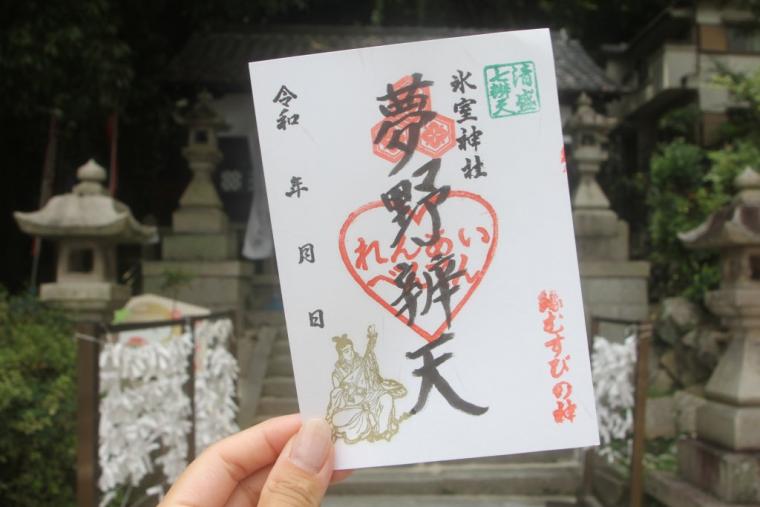 清盛
七辨天
氷室神社
夢野辨天
れんあい
べんてん
縁むすびの神
令和 年 月 日